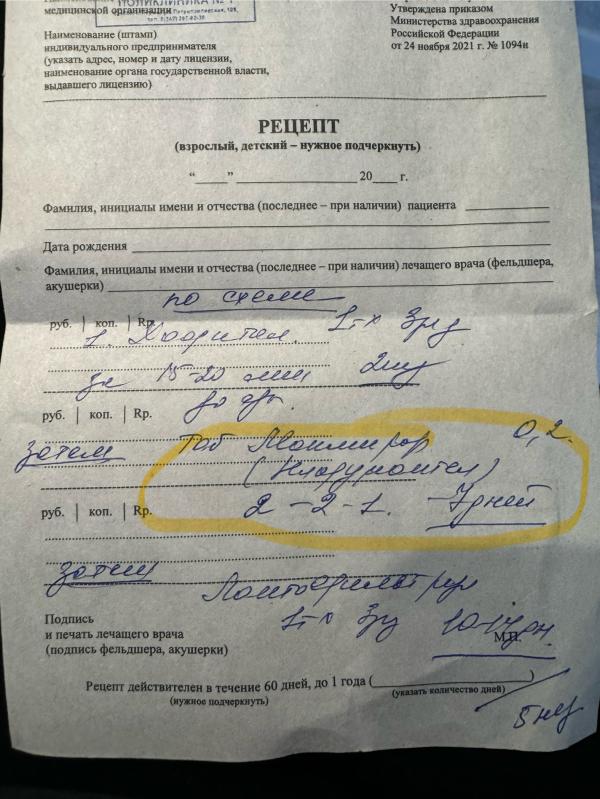 медицинской организации
ПОЛИКЛИНИКА № 1
Утверждена приказом
Министерства здравоохранения
Российской Федерации
от 24 ноября 2021 г. № 1094н
Наименование (штамп)
индивидуального предпринимателя
(указать адрес, номер и дату лицензии,
наименование органа государственной власти,
выдавшего лицензию)
РЕЦЕПТ
(взрослый, детский – нужное подчеркнуть)
“____” ____________ 20___ г.
Фамилия, инициалы имени и отчества (последнее – при наличии) пациента
Дата рождения
Фамилия, инициалы имени и отчества (последнее – при наличии) лечащего врача (фельдшера,
акушерки)
по схеме
руб. | коп. | Rp.
1. Хофитол. 1т х 3р/д
за 15-20 мин
до еды.
руб. | коп. | Rp.
Затем Таб 0,2.
2 – 2 – 1. – 7 дней
руб. | коп. | Rp.
Затем
Лактофильтрум
1т х 3р/д
Подпись
и печать лечащего врача
(подпись фельдшера, акушерки)
М.П.
Рецепт действителен в течение 60 дней, до 1 года (
)
(нужное подчеркнуть)
(указать количество дней)